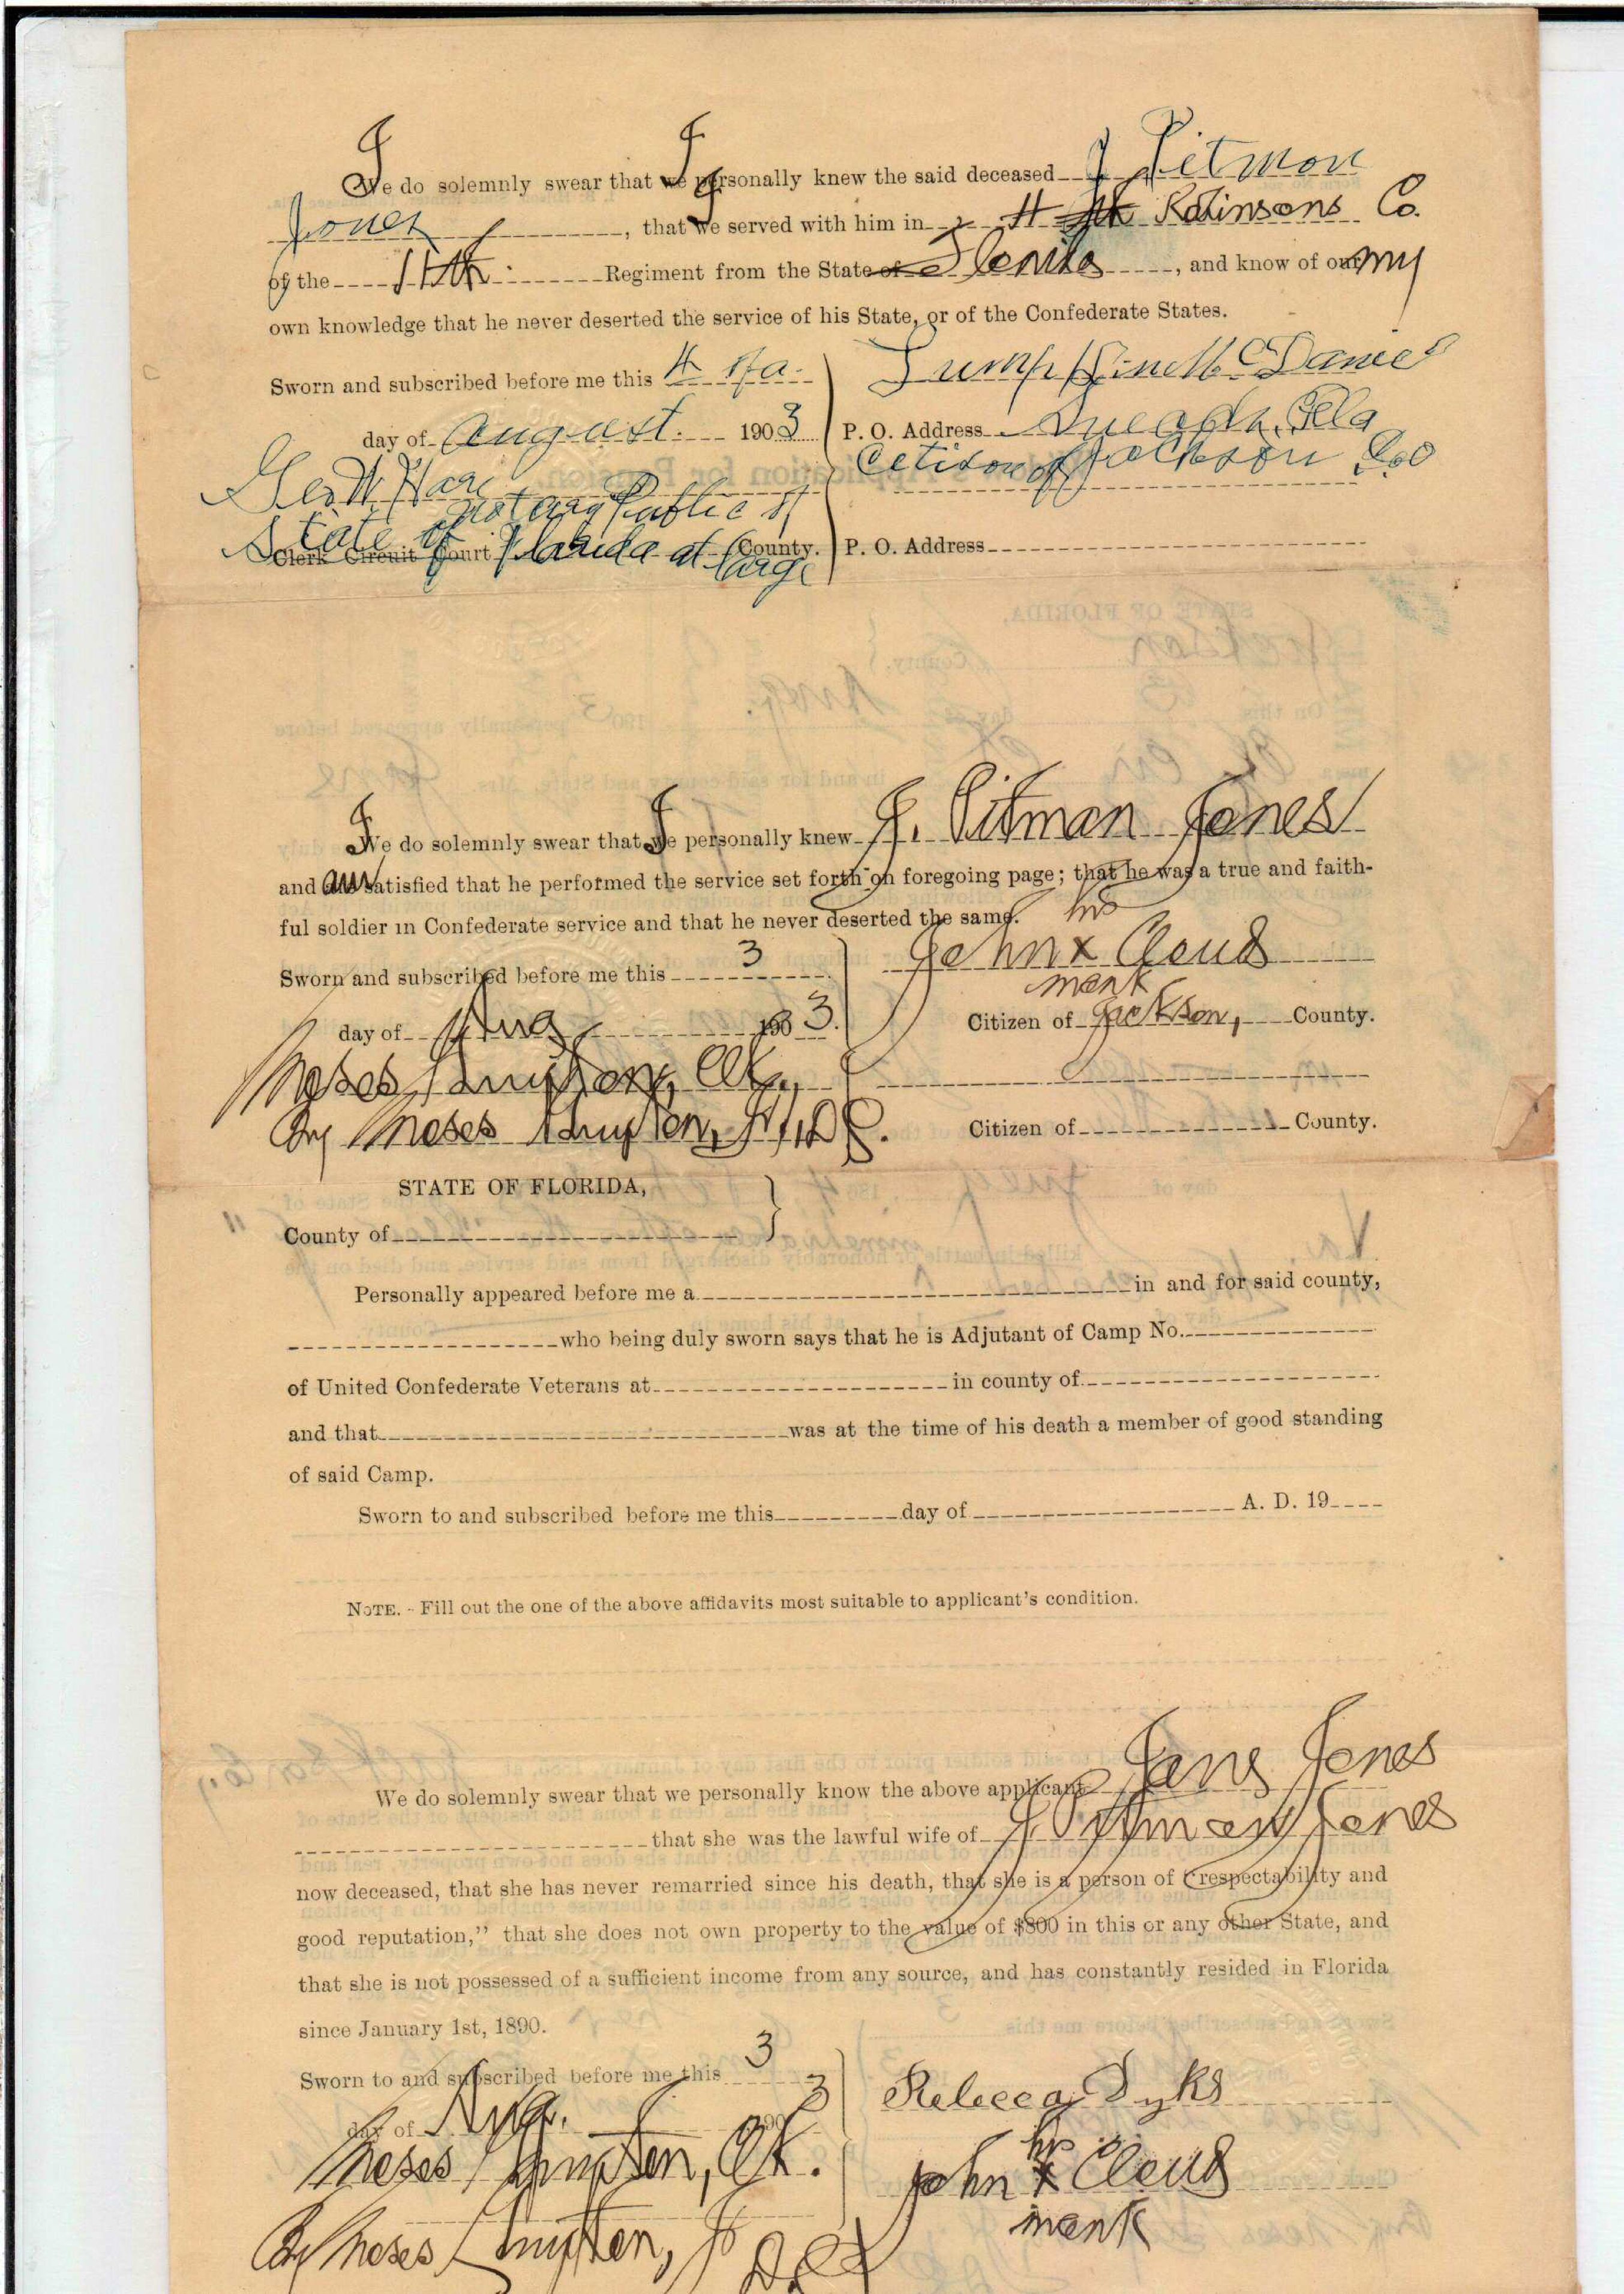 I We do solemnly swear that I we personally knew the said deceased J Pitmon
Jones, that I we served with him in H Robinsons Co.
of the 11th Regiment from the State of Florida, and know of our my
own knowledge that he never deserted the service of his State, or of the Confederate States.
Sworn and subscribed before me this 4
day of August. 1903
McDaniel
P. O. Address Fla
Citizen of Jackson Co
Geo W Hare
Notary Public
State of Florida at large
Clerk Circuit Court County.
P. O. Address
I We do solemnly swear that I we personally knew J. Pitman Jones
and am satisfied that he performed the service set forth on foregoing page; that he was a true and faith-
ful soldier in Confederate service and that he never deserted the same.
Sworn and subscribed before me this 3
day of Aug 1903.
his
John x Cloud
mark
Citizen of Jackson, County.
Moses Clk.,
By Moses Jr, D C.
Citizen of County.
STATE OF FLORIDA,
County of
Personally appeared before me a in and for said county,
who being duly sworn says that he is Adjutant of Camp No.
of United Confederate Veterans at in county of
and that was at the time of his death a member of good standing
of said Camp.
Sworn to and subscribed before me this day of A. D. 19
NOTE. - Fill out the one of the above affidavits most suitable to applicant's condition.
We do solemnly swear that we personally know the above applicant Jane Jones
that she was the lawful wife of J. Pitman Jones
now deceased, that she has never remarried since his death, that she is a person of "respectability and
good reputation," that she does not own property to the value of $800 in this or any other State, and
that she is not possessed of a sufficient income from any source, and has constantly resided in Florida
since January 1st, 1890.
Sworn to and subscribed before me this 3
day of Aug. 1903
Moses Clk.
By Moses Jr D C
Rebecca Dyks
his
John x Cloud
mark